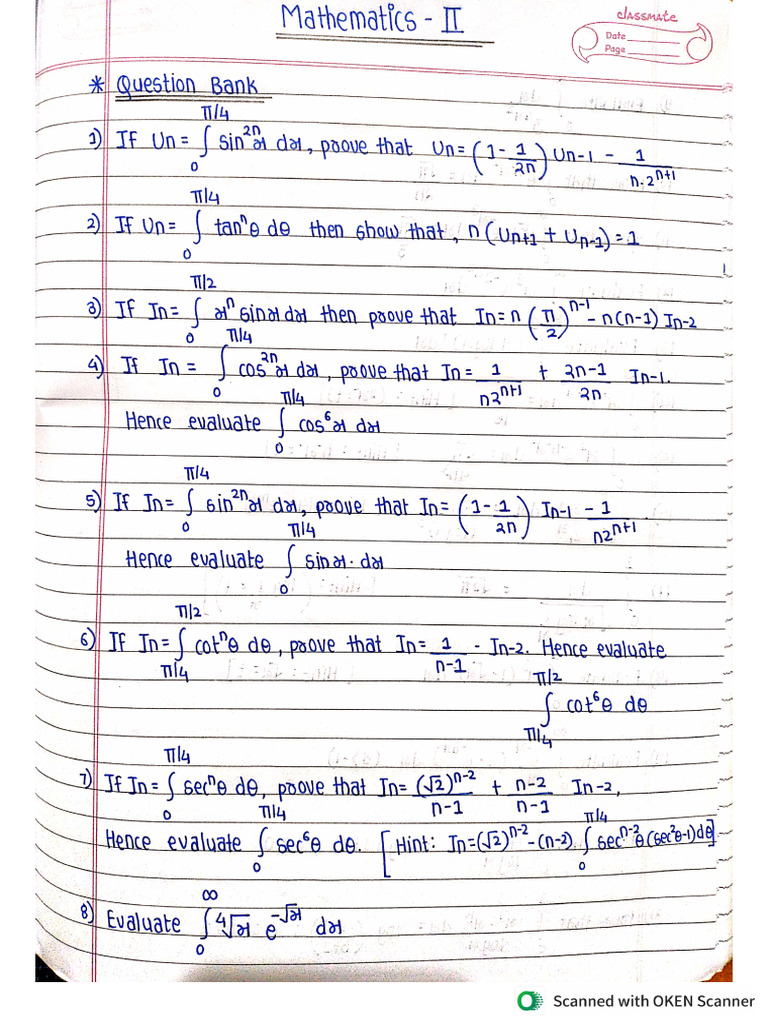 Mathematics - II
classmate
Date
Page
* Question Bank
1) If Un = ∫₀^π/4 sin²ⁿx dx, prove that Un = (1 - 1/2n) Un-1 - 1/n.2ⁿ⁺¹
2) If Un = ∫₀^π/4 tanⁿθ dθ then show that, n(Un+1 + Un-1) = 1
3) If In = ∫₀^π/2 xⁿ sinx dx then prove that In = n(π/2)ⁿ⁻¹ - n(n-1) In-2
4) If In = ∫₀^π/4 cos²ⁿx dx, prove that In = 1/n2ⁿ⁺¹ + 2n-1/2n In-1.
Hence evaluate ∫₀^π/4 cos⁶x dx
5) If In = ∫₀^π/4 sin²ⁿx dx, prove that In = (1 - 1/2n) In-1 - 1/n2ⁿ⁺¹
Hence evaluate ∫₀^π/4 sinx. dx
6) If In = ∫π/4^π/2 cotⁿθ dθ, prove that In = 1/n-1 - In-2. Hence evaluate
∫π/4^π/2 cot⁶θ dθ
7) If In = ∫₀^π/4 secⁿθ dθ, prove that In = (√2)ⁿ⁻²/n-1 + n-2/n-1 In-2,
Hence evaluate ∫₀^π/4 sec⁶θ dθ. [Hint: In = (√2)ⁿ⁻² - (n-2) ∫₀^π/4 secⁿ⁻²θ (sec²θ-1) dθ]
8) Evaluate ∫₀^∞ ⁴√x e^-√x dx
Scanned with OKEN Scanner